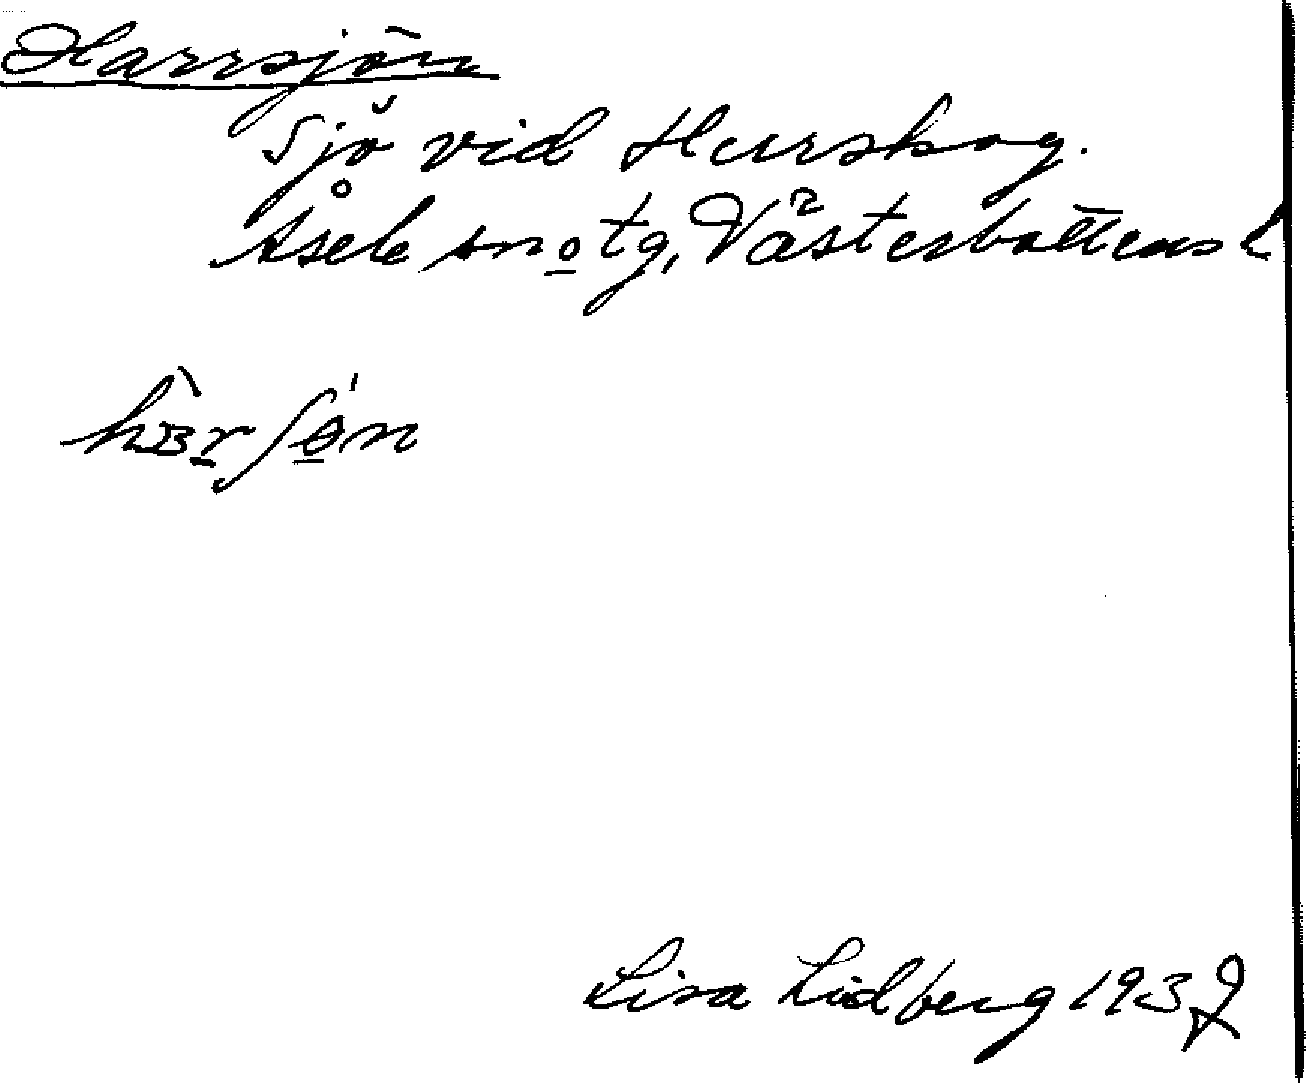 Harrsjön
Sjö vid Hurskog.
Åsele sn o tg, Västerbottens l
Lisa Lidberg 193